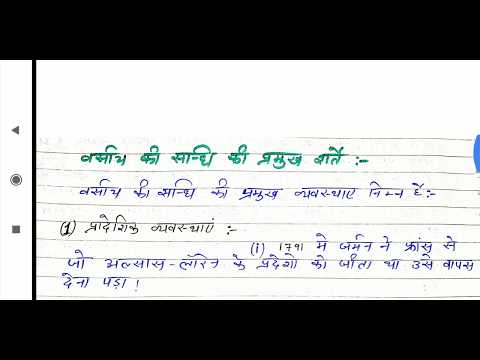 वर्साय की सन्धि की प्रमुख बातें :-
वर्साय की सन्धि की प्रमुख व्यवस्थाएं निम्न है:-
(1) प्रादेशिक व्यवस्थाएं :-
(i) 1791 मे जर्मन ने फ्रांस से
जो अल्सास-लॉरेन के प्रदेशो को जीता था उसे वापस
देना पड़ा !